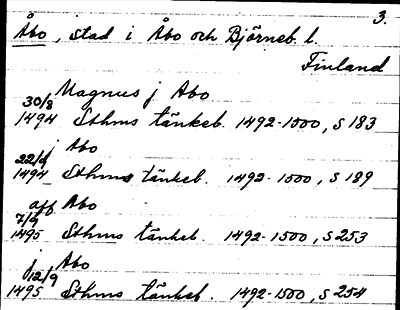 3.
Åbo, stad i Åbo och Björneb. l.
Finland
Magnus j Abo
30/8
1494 Sthms tänkeb. 1492-1500, s 183
j Abo
1494 Sthms tänkeb. 1492-1500, s 189
aff Abo
7/9
1495 Sthms tänkeb. 1492-1500, s 253
j Abo
12/9
1495 Sthms tänkeb. 1492-1500, s 254